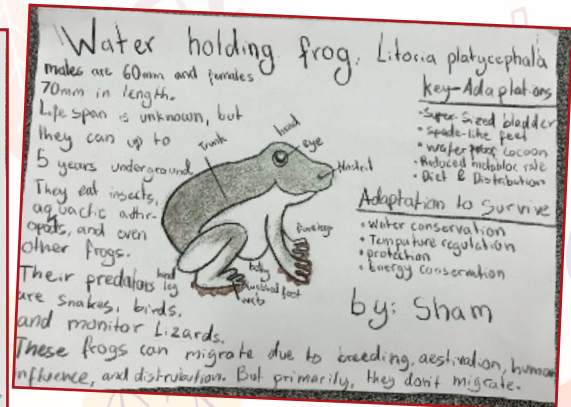 Water holding frog, Litoria platycephala
males are 60mm and females
70mm in length.
Life span is unknown, but
they can up to
5 years underground
They eat insects,
aquactic athr-
opods, and even
other frogs.
Their predators
are snakes, birds,
and monitor Lizards.
These frogs can migrate due to breeding, aestivation, human
influence, and distrubution. But primarily, they don't migrate.
Trunk
head
eye
Nostril
Forelegs
hind
leg
belly
webbed foot
webs
key-Adaptations
• Super Sized bladder
• Spade-like feet
• waterproof cocoon
• Reduced metabloc rate
• Diet & Distribution
Adaptation to Survive
• Water conservation
• Tempature regulation
• protection
• Energy conservation
by: Sham